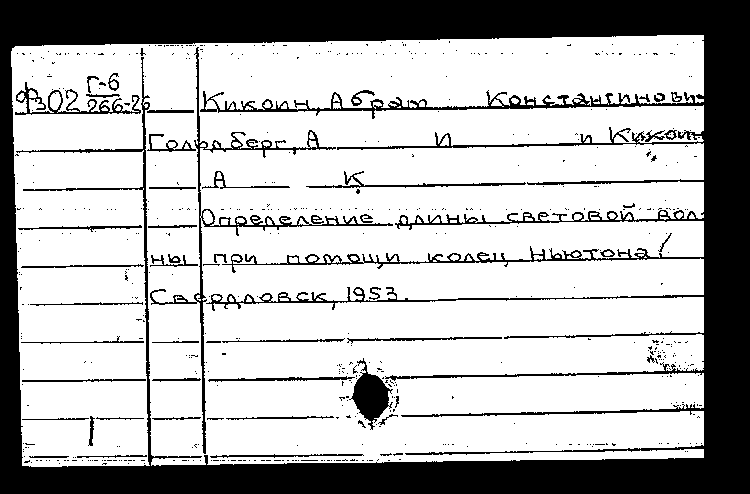 Фз02 Г-6
266-26
Кикоин, Абрам Константинович
Гольдберг, А И и Кикоин
А К
Определение длины световой вол-
ны при помощи колец Ньютона/
Свердловск, 1953.
1